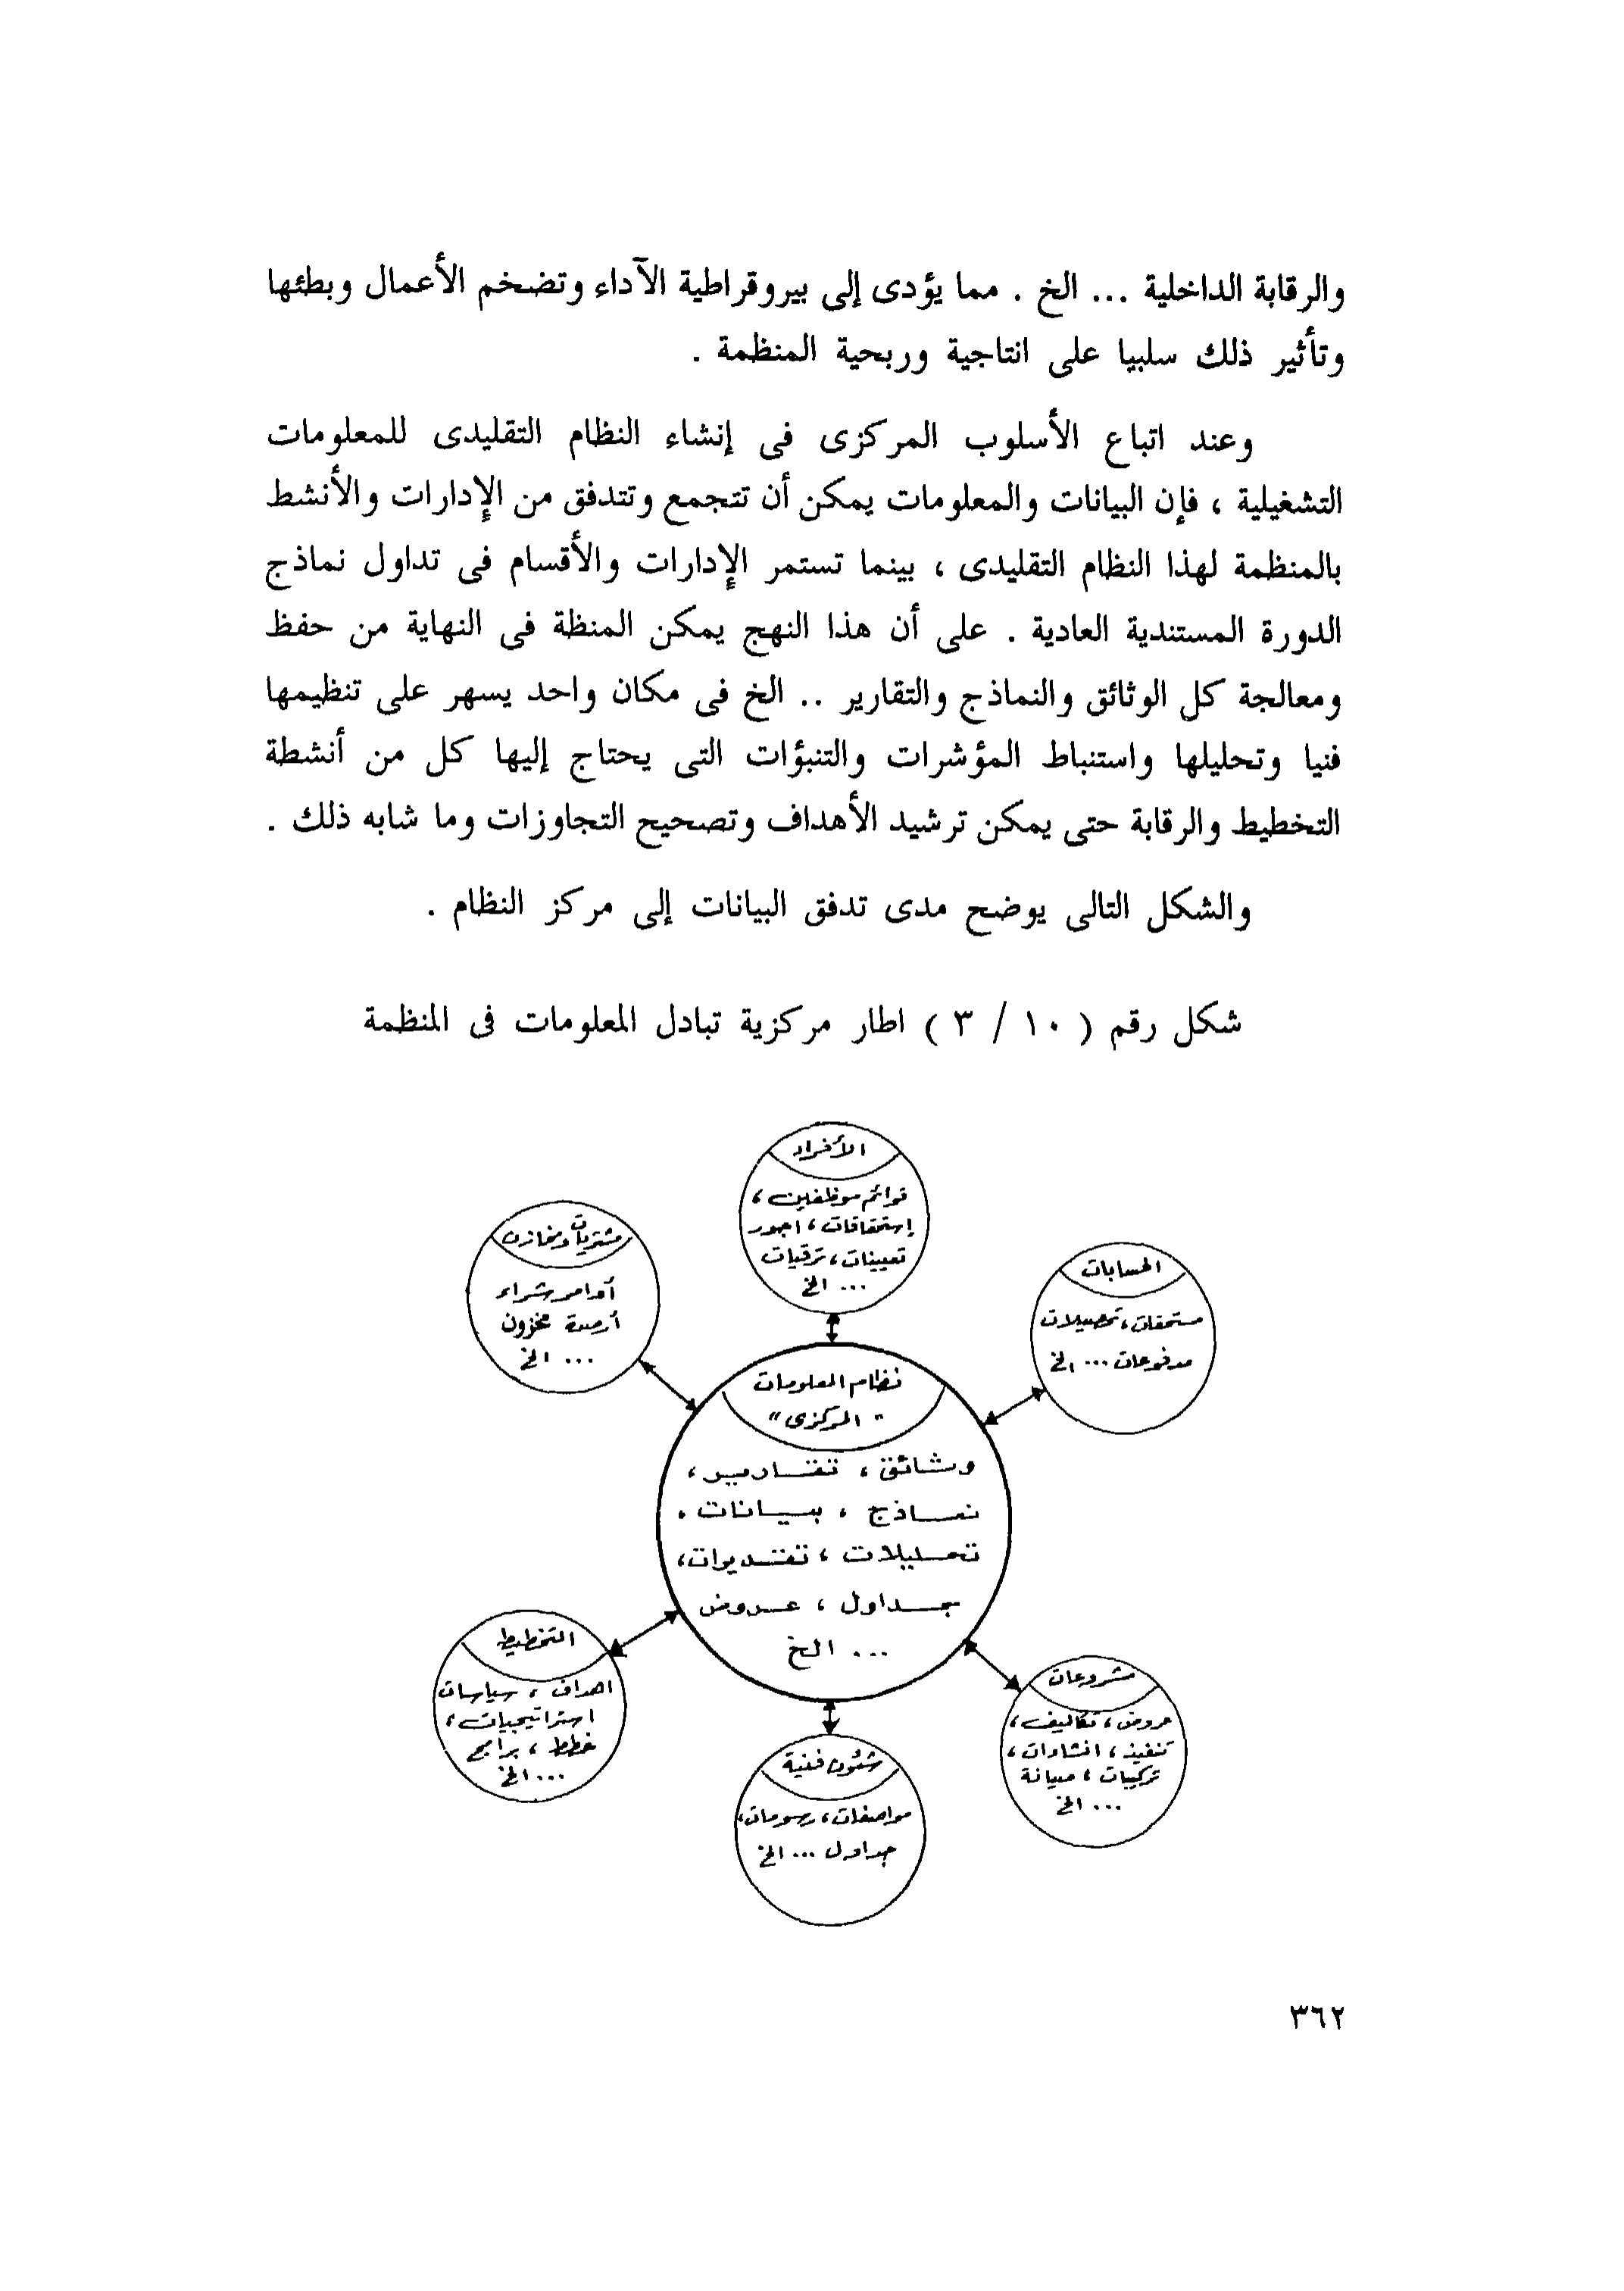 والرقابة الداخلية ... الخ . مما يؤدى إلى بيروقراطية الآداء وتضخم الأعمال وبطئها
وتأثير ذلك سلبيا على انتاجية وربحية المنظمة .
وعند اتباع الأسلوب المركزى فى إنشاء النظام التقليدى للمعلومات
التشغيلية ، فإن البيانات والمعلومات يمكن أن تتجمع وتتدفق من الإدارات والأنشط
بالمنظمة لهذا النظام التقليدى ، بينما تستمر الإدارات والأقسام فى تداول نماذج
الدورة المستندية العادية . على أن هذا النهج يمكن المنظة فى النهاية من حفظ
ومعالجة كل الوثائق والنماذج والتقارير .. الخ فى مكان واحد يسهر على تنظيمها
فنيا وتحليلها واستنباط المؤشرات والتنبؤات التى يحتاج إليها كل من أنشطة
التخطيط والرقابة حتى يمكن ترشيد الأهداف وتصحيح التجاوزات وما شابه ذلك .
والشكل التالى يوضح مدى تدفق البيانات إلى مركز النظام .
شكل رقم ( ١٠ / ٣ ) اطار مركزية تبادل المعلومات فى المنظمة
الأفراد
قوائم موظفين ،
إستحقاقات ، اجور
تعيينات ، ترقيات
... الخ
الحسابات
مستحقات ، تحصيلات
مدفوعات ... الخ
مشتريات ومخازن
أوامر شراء
أرصدة مخزون
... الخ
نظام المعلومات
" المركزى "
وثائق ، تقارير ،
نماذج ، بيانات ،
تحليلات ، تقديرات ،
جداول ، عروض
... الخ
التخطيط
اهداف ، سياسات
استراتيجيات ،
خطط ، برامج
... الخ
مشروعات
عروض ، تكاليف ،
تنفيذ ، انشاءات ،
تركيبات ، صيانة
... الخ
شئون فنية
مواصفات ، رسومات ،
جداول ... الخ
٣٦٢